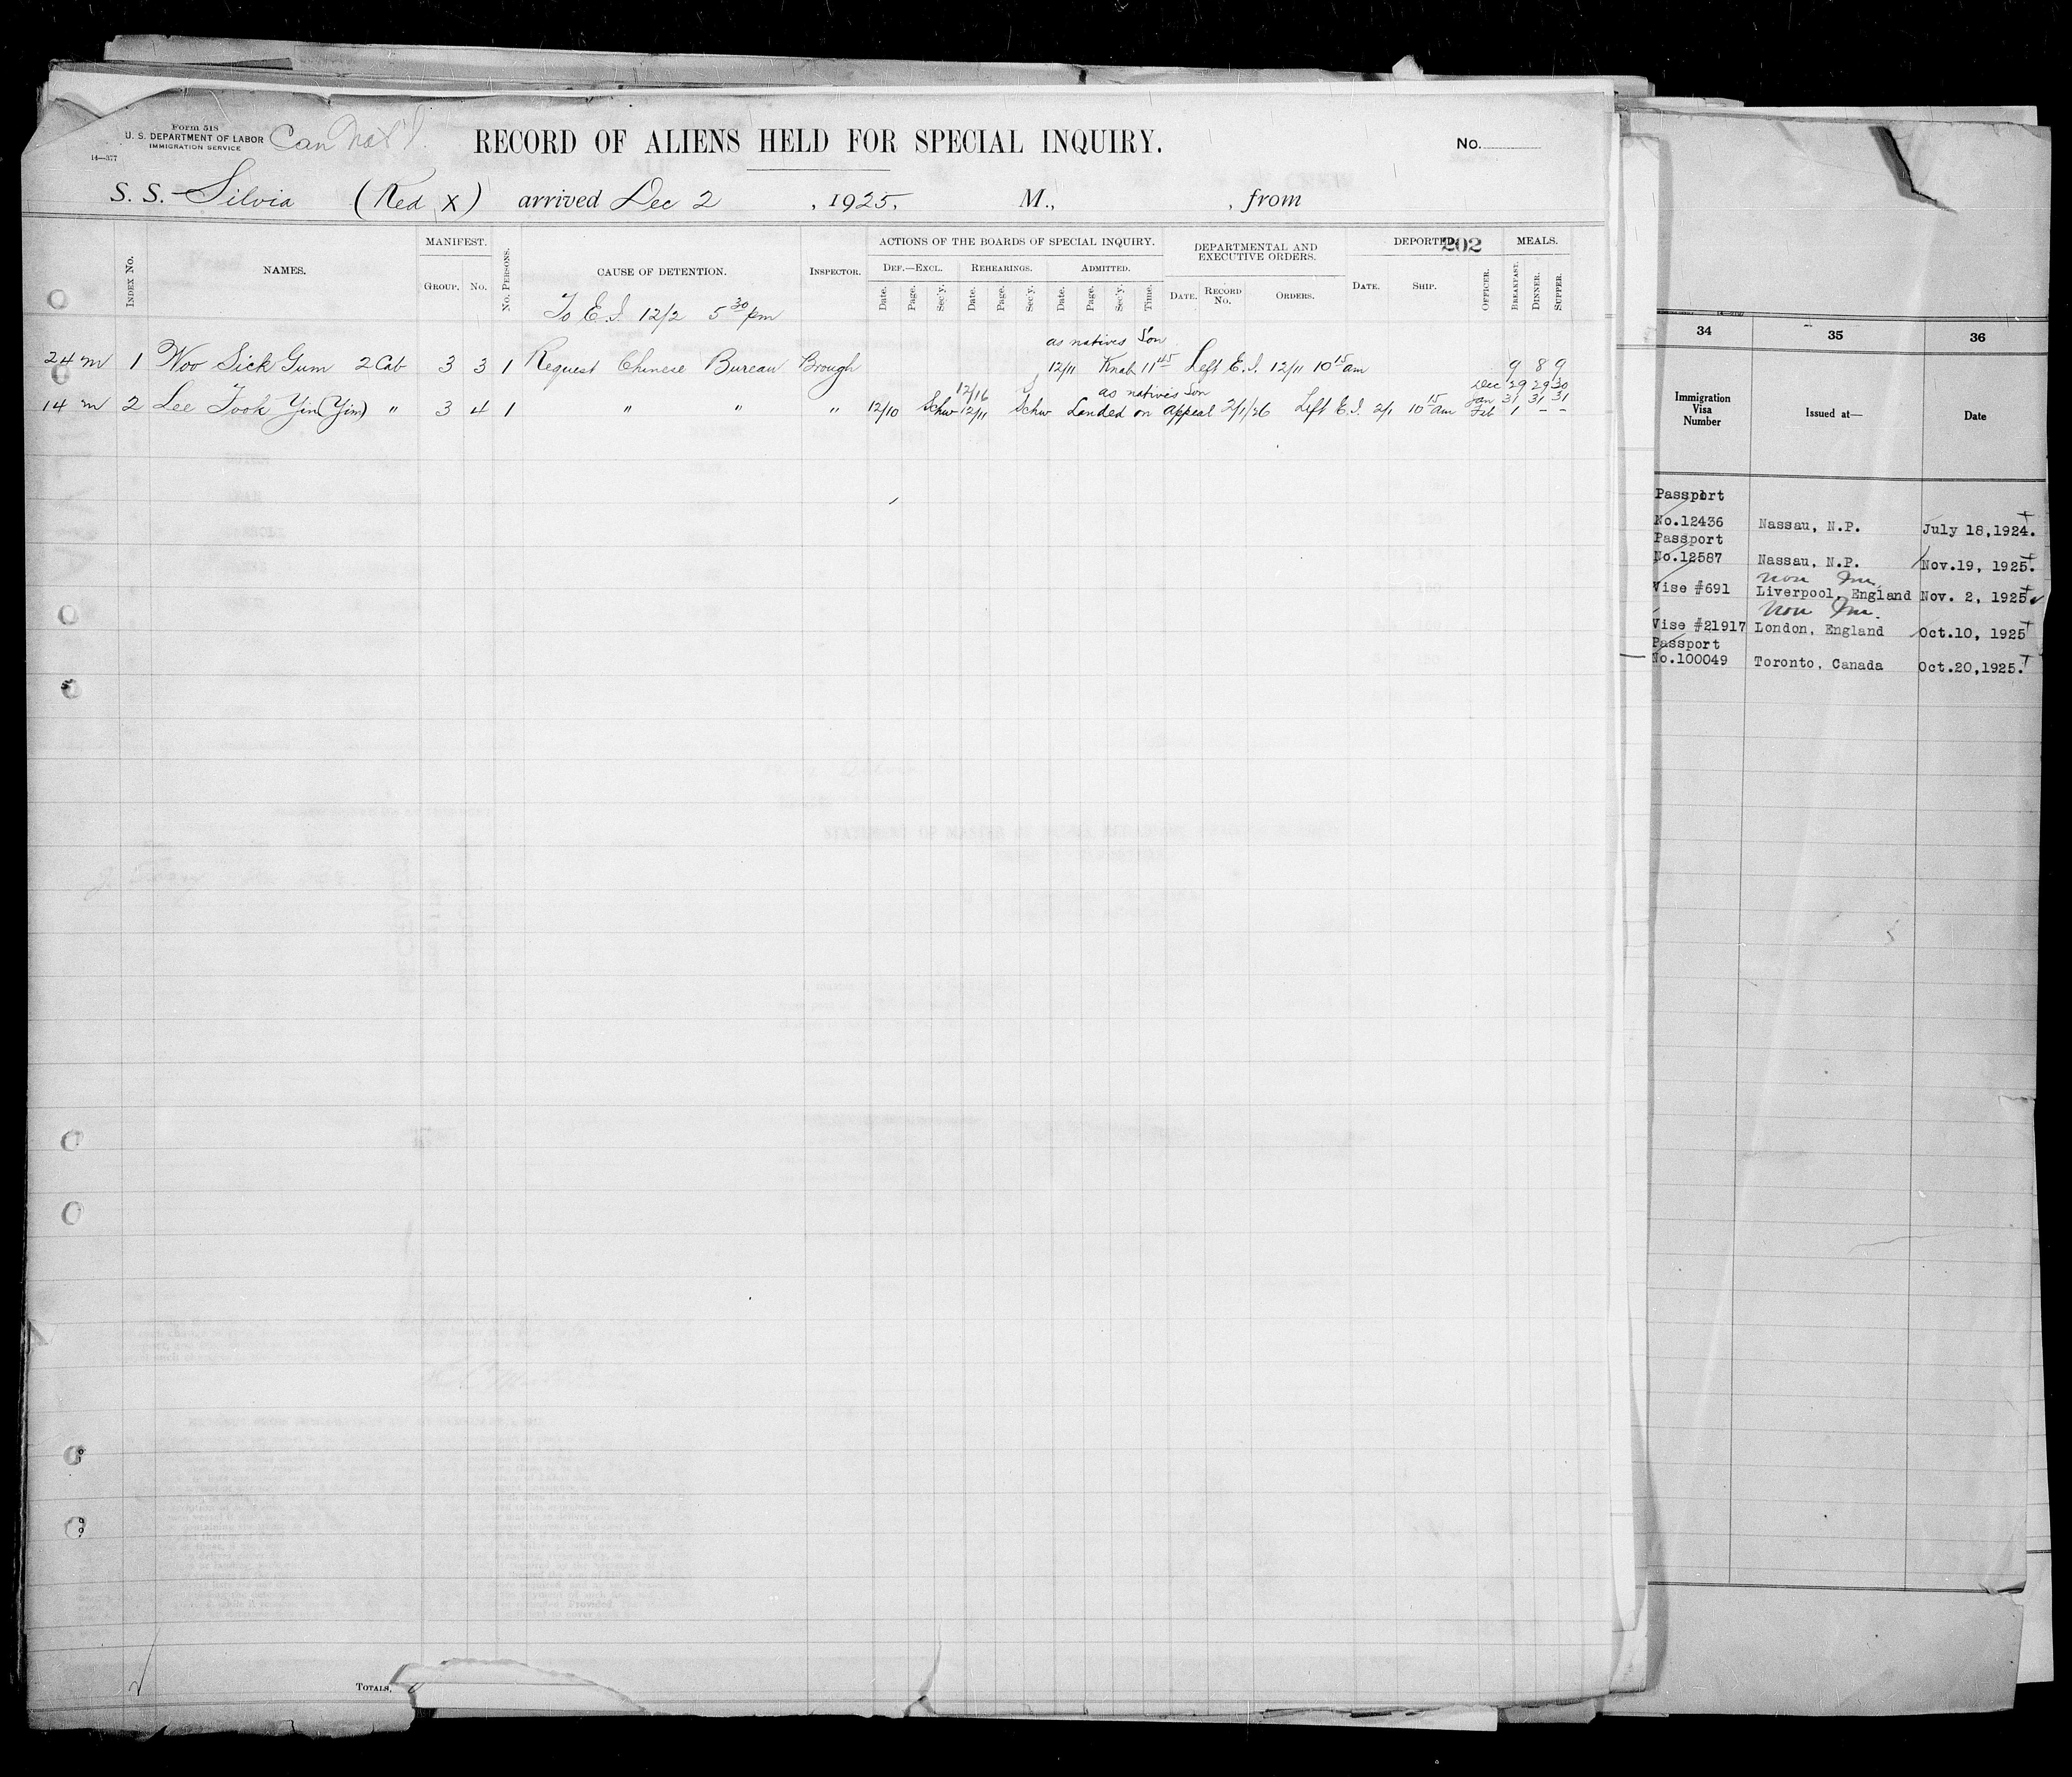 Form 518
U. S. DEPARTMENT OF LABOR
IMMIGRATION SERVICE
14—377
Can Nat'l.
RECORD OF ALIENS HELD FOR SPECIAL INQUIRY.
No.
S. S. Silvia (Red X) arrived Dec 2, 1925, M., , from
202
INDEX No.
NAMES.
MANIFEST.
GROUP. No.
No. PERSONS.
CAUSE OF DETENTION.
INSPECTOR.
ACTIONS OF THE BOARDS OF SPECIAL INQUIRY.
DEF.—EXCL. REHEARINGS. ADMITTED.
Date. Page. Sec'y. Date. Page. Sec'y. Date. Page. Sec'y. Time.
DEPARTMENTAL AND EXECUTIVE ORDERS.
DATE. RECORD No. ORDERS.
DEPORTED.
DATE. SHIP. OFFICER.
MEALS.
BREAKFAST. DINNER. SUPPER.
To E.I. 12/2 5 30 pm
as natives Son
24 m 1 Woo Sick Gum 2 Cab 3 3 1 Request Chinese Bureau Brough 12/11 Knab 11 45 Left E.I. 12/11 10 15 am 9 8 9
12/16 as natives Son Dec 29 29 30
Jan 31 31 31
14 m 2 Lee Took Yin (Yim) " 3 4 1 " " " 12/10 Schw 12/11 Schw Landed on appeal 2/1/26 Left E.I. 2/1 10 15 am Feb 1 – –
TOTALS,
34 35 36
Immigration Visa Number
Issued at—
Date
Passport
No.12436 Nassau, N.P. July 18,1924.
Passport
No.12587 Nassau, N.P. Nov.19, 1925.
non Im.
Vise #691 Liverpool, England Nov. 2, 1925
non Im.
Vise #21917 London, England Oct.10, 1925
Passport
No.100049 Toronto, Canada Oct.20,1925.